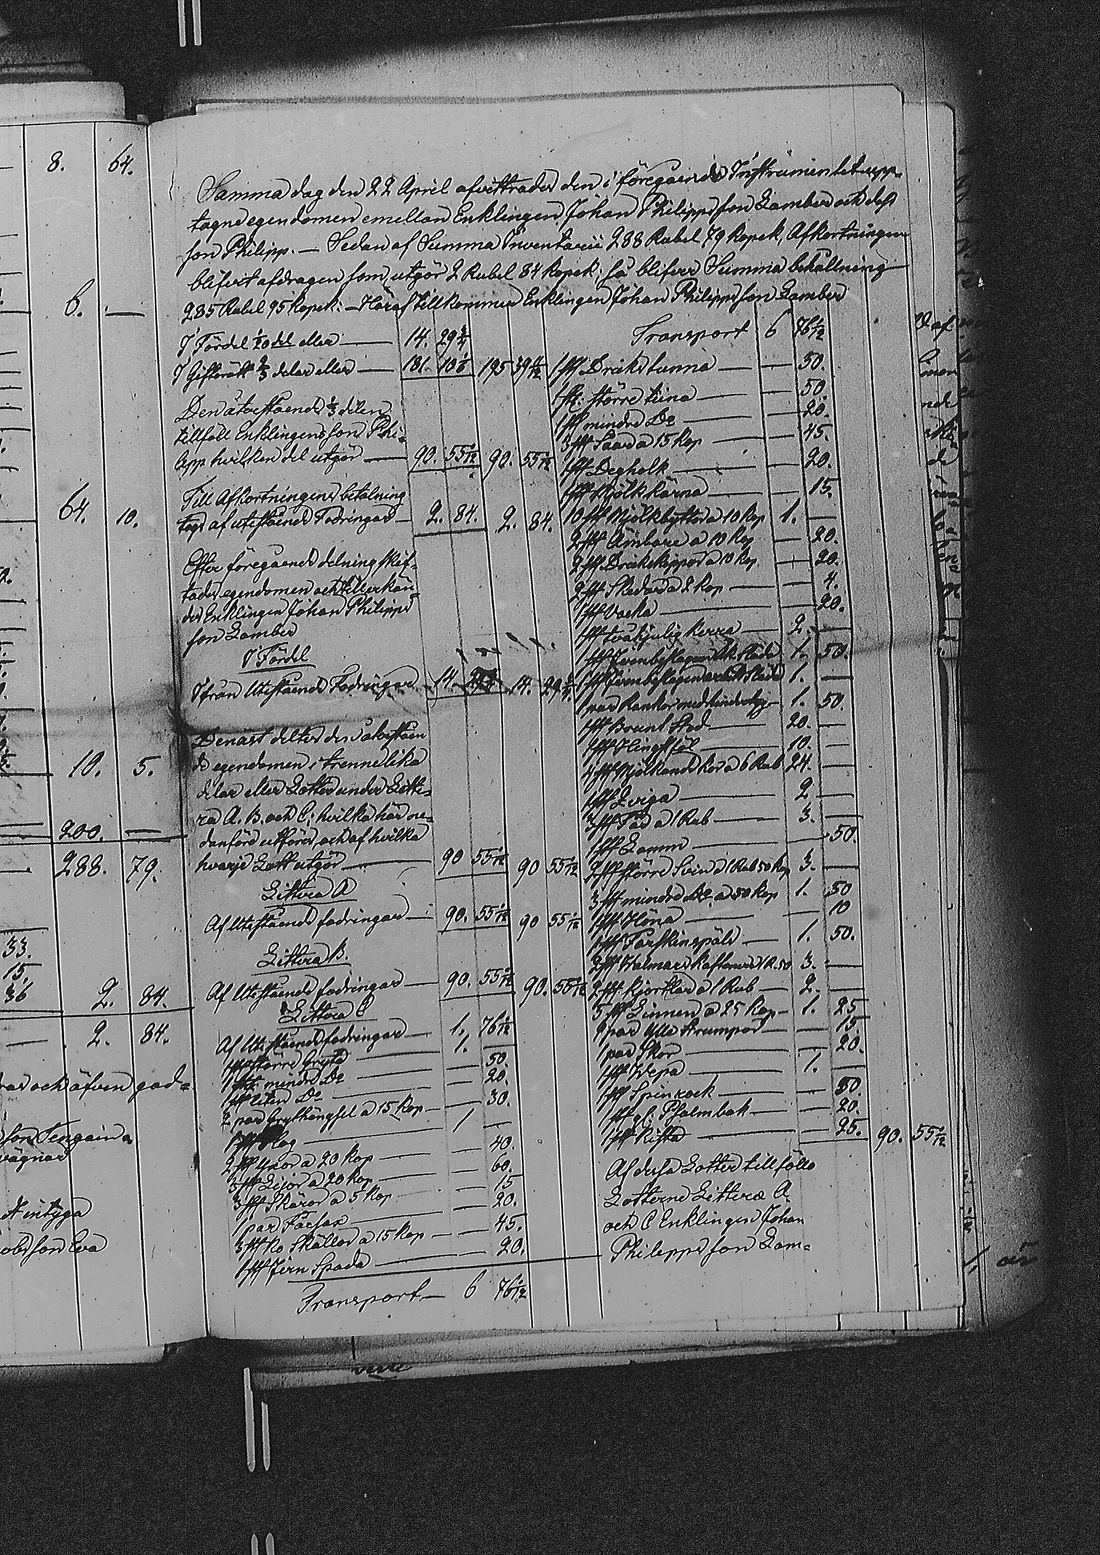 8. 64.
6. —
64. 10.
10. 5.
200. —
288. 79.
33.
15.
36 2. 84.
— 2. 84.
och äfven god=
vägnar
intyga
son Eva
Samma dag den 22 April afvittrades den i föregående Instrumentet upp=
tagne egendomen emellan Enklingen Johan Philippsson Lamber och dess
son Philipp. — Sedan af Summa Inventarii 288 Rubel 79 Kopek, Afkortningen
blifvit afdragen som utgör 2 Rubel 84 Kopek; så blifver Summa behållning
285 Rubel 95 Kopek. — Häraf tillkommer Enklingen Johan Philippsson Lamber
I Fördel 1/20 del eller — 14. 29 3/4
I Giftorätt 2/3 delar eller — 181. 10 1/6 195 39 11/12
Den återstående 1/3 delen
tillföll Enklingens son Phi=
lipp hvilken del utgör — 90. 55 1/12 90. 55 1/12
Till Afkortningens betalning
togs af utestående Fodringar — 2. 84. 2. 84.
Efter föregående delning skif=
tades egendomen och tillerkän=
des Enklingen Johan Philipps
son Lamber
I Fördel
Ifrån Utestående Fodringar 14. 14. 29 3/4
Denast deltes den återståen
de egendomen i trenne lika
delar eller Lotter under Litte=
ra A. B. och C. hvilka här ne=
danföre utföres, och af hvilka
hvarje Lott utgör — 90 55 1/12 90 55 1/12
Littera A
Af Utestående fodringar — 90. 55 1/12 90 55 1/12
Littera B.
Af Utestående fodringar — 90. 55 1/12 90. 55 1/12
Littera C
Af Utestående fodringar — 1. 76 1/12
1 st större Gryta — 1.
1 st mindre Do — 50.
1 st liten Do — 20.
2 par Grythängsel a 15 Kop — 30.
1 st Plog — 1 —
2 st Yxor a 20 Kop — 40.
3 st Lior a 20 Kop — 60.
3 st Skäror a 5 Kop — 15
1 par Fårsax — 20.
3 st Ko Skällor a 15 Kop — 45.
1 st Jern Spada — 20.
Transport — 6 76 1/12
Transport 6 76 1/12
1 st Drickstunna — 50.
1 st större tina — 50.
1 st mindre Do — 20.
3 st Såar a 15 Kop — 45.
1 st Degholk — 20.
1 st Mjölk kärna — 15.
10 st Mjölkbyttor a 10 Kop 1. —
2 st Ämbare a 10 Kop — 20.
2 st Dricksskappor a 10 Kop — 20.
2 st Skedar a 2 Kop — 4.
1 st Vacka — 20.
1 st tvåhjulig Kerra — 2. —
1 st Jernbeslagen Åk Släde 1. 50.
1 st Jernbeslagen arbets Släde 1. —
1 par Rankor med 1. 50.
1 st Brunt Sted — 20. —
1 st Hingst föl — 10. —
4 st Mjölkande Kor a 6 Rub 24. —
1 st Qviga — 2 —
3 st Får a 1 Rub — 3. —
1 st Lamm — 50.
2 st större Svin a 1 Rub 50 Kop 3. —
3 st mindre Do a 50 Kop 1. 50
1 st Höna — 10
1 st Fårskinspäls — 1. 50.
2 st Valmars Kaftaner a 1 R 50 3. —
2 st Kjortlar a 1 Rub — 2. —
5 st Linnen a 25 Kop — 1. 25
1 par Ylle strumpor — 15
1 par Skor — 20.
1 st Vepa — 1. —
1 st Spinrock — 80.
1 st gl. Psalmbok — 20.
1 st Kista — 25. 90. 55 1/12
Af dessa Lotter tillföllo
Lotterne Littera A
och C Enklingen Johan
Philippsson Lam=